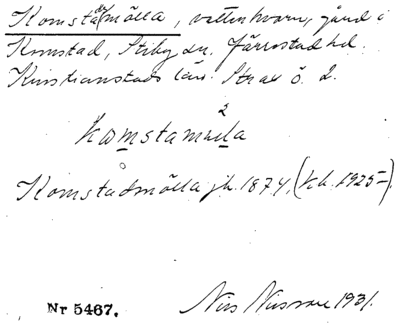 Komstadmölla, vattenkvarn, gård i
Komstad, Stiby sn. Järrestad hd.
Kristianstads län. Strax ö. 2.
2
komstamöla
Komstadmölla jk. 1874, (kk. 1925–).
Nr 5467. Nils Nilsson 1931.